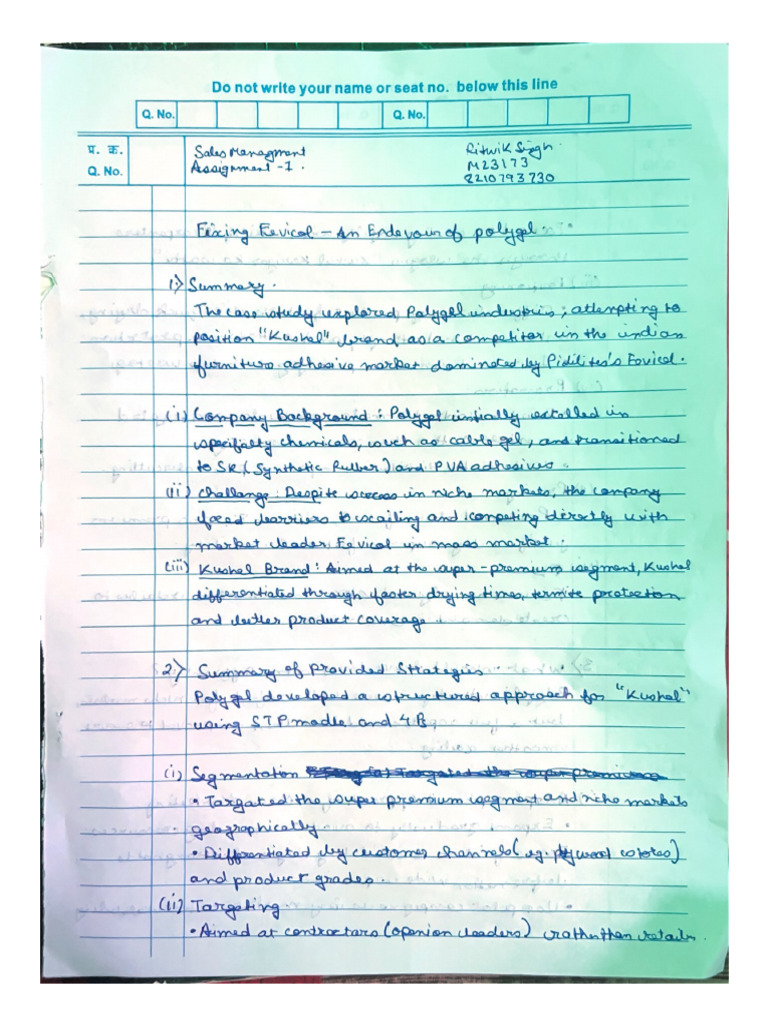 Do not write your name or seat no. below this line
Q. No. Q. No.
प्र. क्र.
Q. No.
Sales Managment
Assignment -1.
Ritwik Singh.
M23173
2210793730
Fixing Fevicol - An Endevour of polygel.
1) Summary.
The case study explored Polygel industries, attempting to
position "Kushal" brand as a competitor in the indian
furniture adhesive market dominated by Pidilites's Fevicol.
(i) Company Background : Polygel initially excelled in
specifalty chemicals, such as cable gel, and transitioned
to SR (Synthetic Rubber) and PVA adhesives
(ii) Challange : Despite success in niche markets, the company
faced barriers to scailing and competing directly with
market leader Fevicol in mass market.
(iii) Kushal Brand : Aimed at the super-premium segment, Kushal
differentiated through faster drying time, termite protection
and better product coverage
2) Summary of Provided Strategies.
Polygel developed a structured approach for "Kushal"
using STP and 4 Ps
(i) Segmentation
• Targated the super premium segment and niche markets
geographically
• Differentiated by customer channels (eg. plywood stores)
and product grades.
(ii) Targeting
• Aimed at contractors (openion leaders) rather than retails.